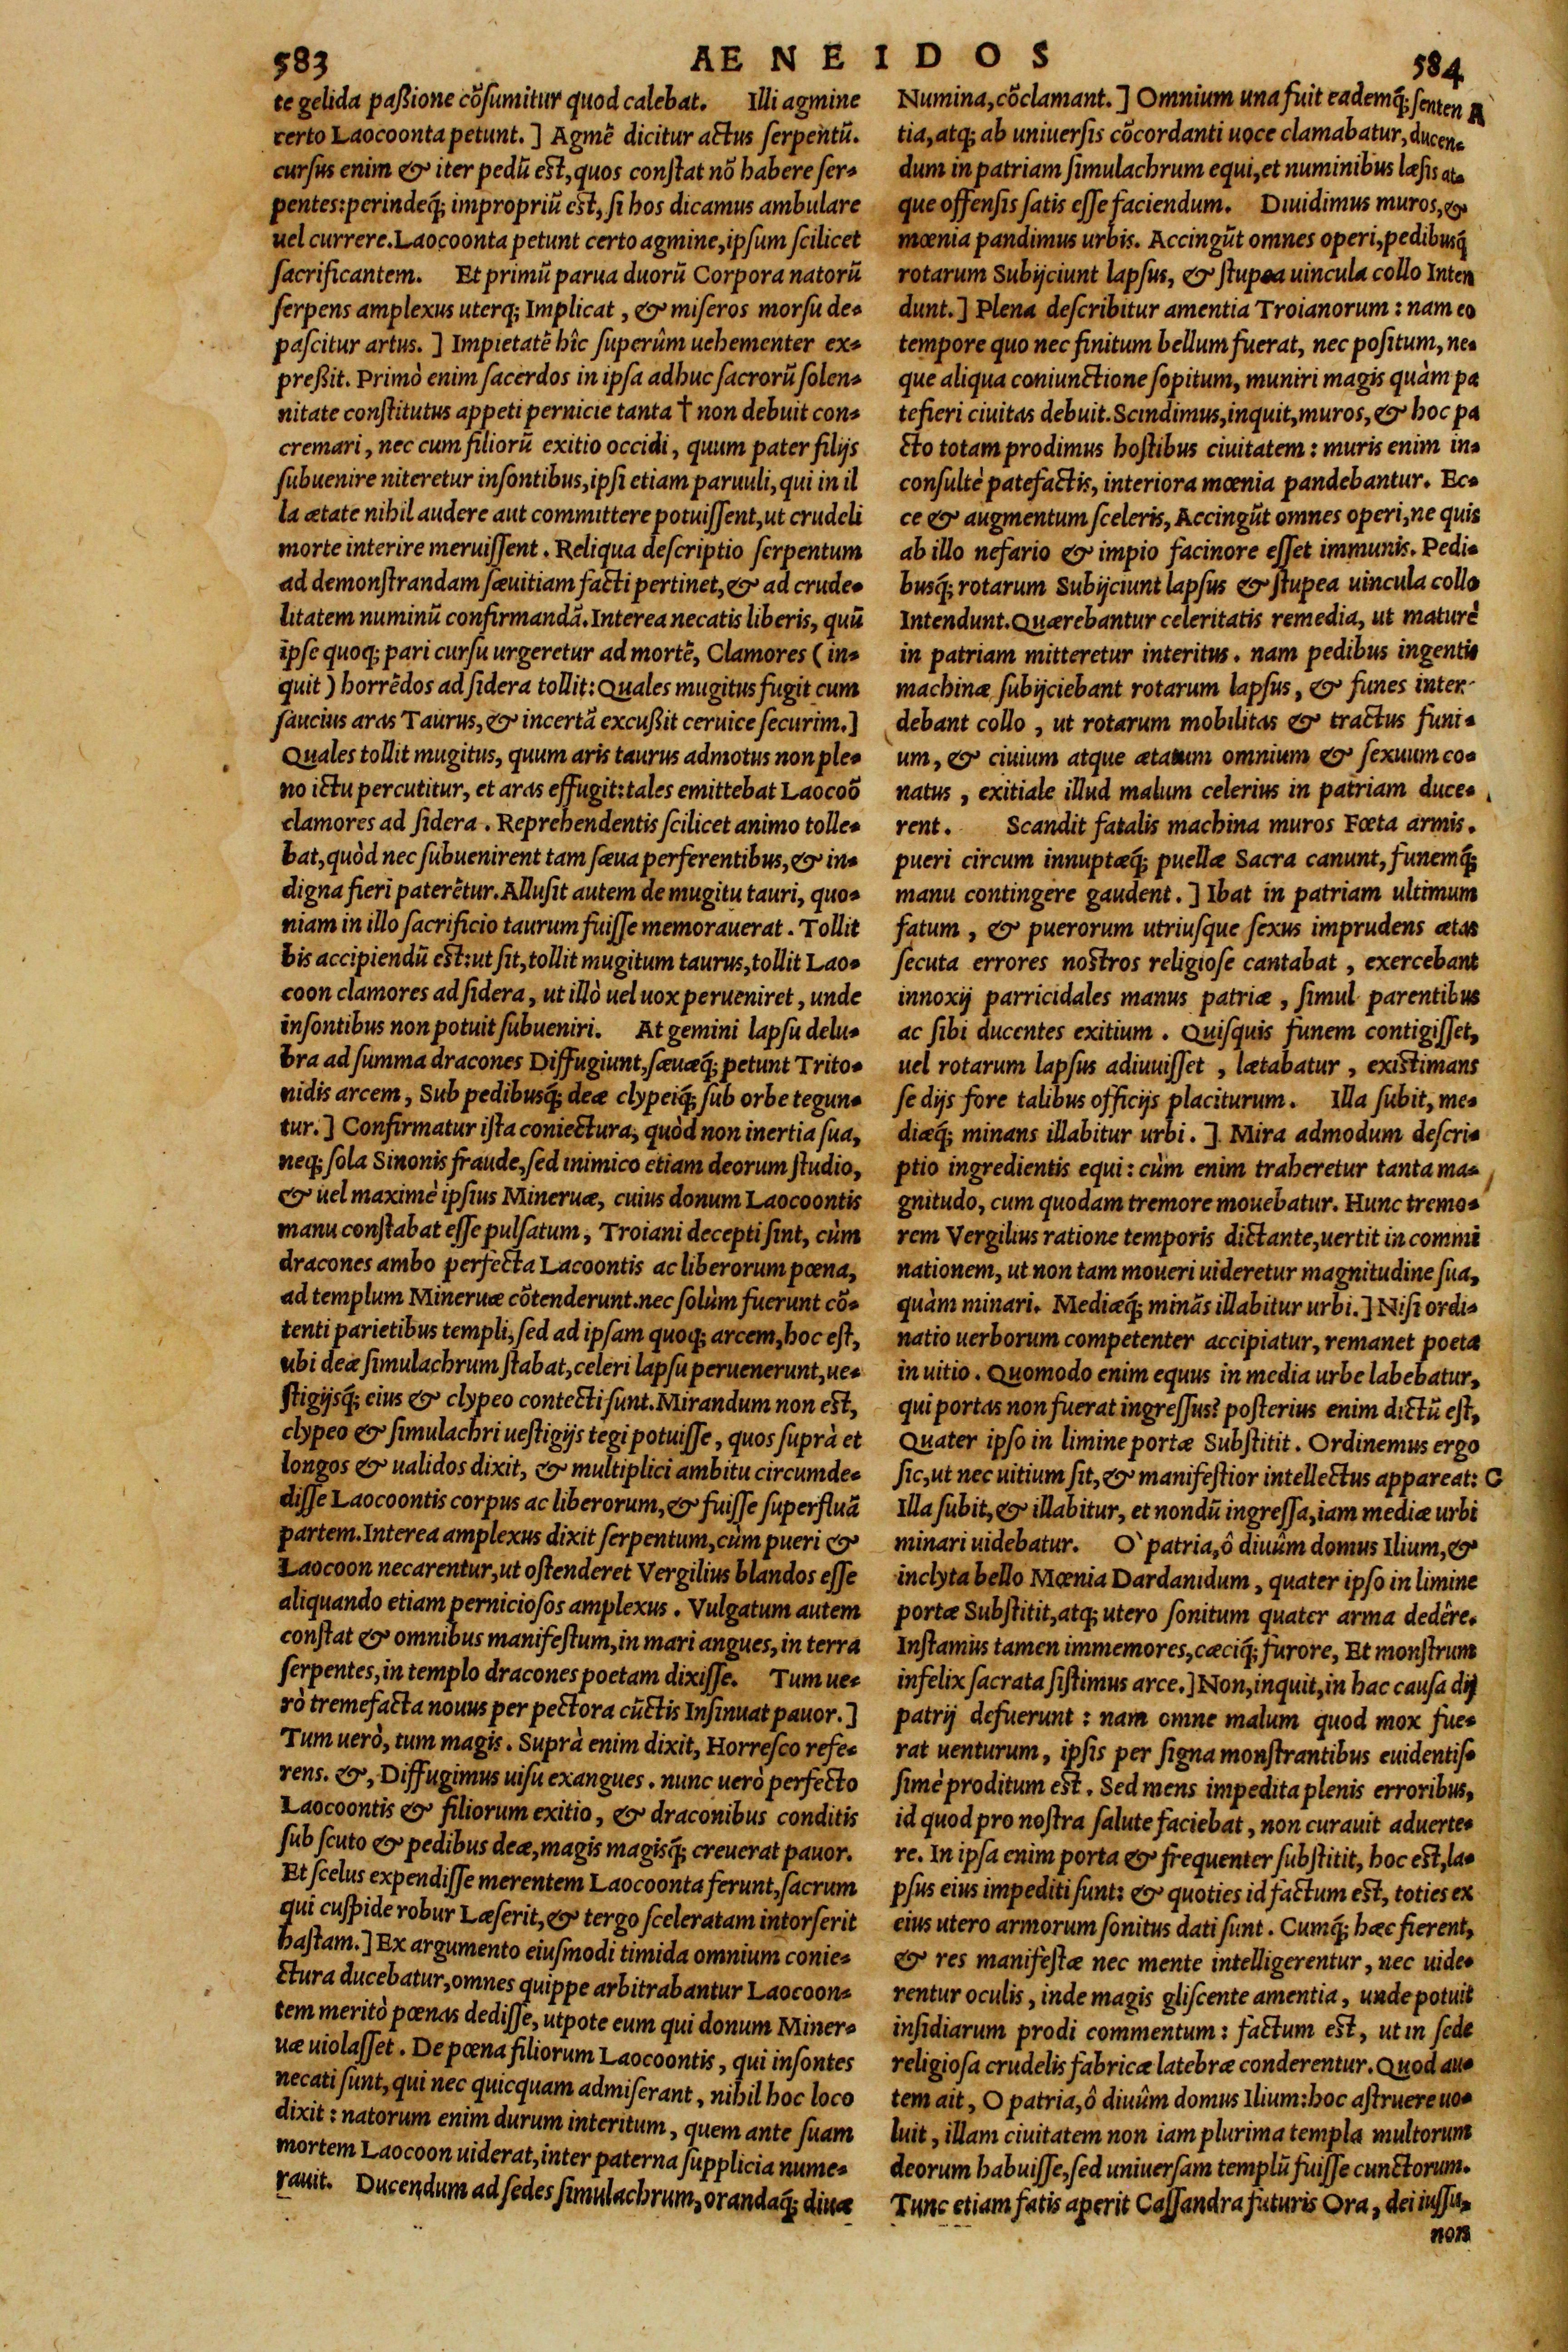 583
AENEIDOS
584
te gelida paßione cõſumitur quod calebat. Illi agmine
certo Laocoonta petunt. ] Agmẽ dicitur actus ſerpentũ.
curſus enim & iter pedũ eſt, quos conſtat nõ habere ſer-
pentes: perindeq́; impropriũ eſt, ſi hos dicamus ambulare
uel currere. Laocoonta petunt certo agmine, ipſum ſcilicet
ſacrificantem. Et primũ parua duorũ Corpora natorũ
ſerpens amplexus uterq; Implicat, & miſeros morſu de-
paſcitur artus. ] Impietatẽ hîc ſuperûm uehementer ex-
preßit. Primò enim ſacerdos in ipſa adhuc ſacrorũ ſolen-
nitate conſtitutus appeti pernicie tanta † non debuit con-
cremari, nec cum filiorũ exitio occidi, quum pater filijs
ſubuenire niteretur inſontibus, ipſi etiam paruuli, qui in il
la ætate nihil audere aut committere potuiſſent, ut crudeli
morte interire meruiſſent. Reliqua deſcriptio ſerpentum
ad demonſtrandam ſæuitiam facti pertinet, & ad crude-
litatem numinũ confirmandã. Interea necatis liberis, quũ
ipſe quoq; pari curſu urgeretur ad mortẽ, Clamores (in-
quit) horrẽdos ad ſidera tollit: Quales mugitus fugit cum
ſaucius aras Taurus, & incertã excußit ceruice ſecurim.]
Quales tollit mugitus, quum aris taurus admotus non ple-
no ictu percutitur, et aras effugit: tales emittebat Laocoõ
clamores ad ſidera. Reprehendentis ſcilicet animo tolle-
bat, quòd nec ſubuenirent tam ſæua perferentibus, & in-
digna fieri paterẽtur. Alluſit autem de mugitu tauri, quo-
niam in illo ſacrificio taurum fuiſſe memorauerat. Tollit
bis accipiendũ eſt: ut ſit, tollit mugitum taurus, tollit Lao-
coon clamores ad ſidera, ut illò uel uox perueniret, unde
inſontibus non potuit ſubueniri. At gemini lapſu delu-
bra ad ſumma dracones Diffugiunt, ſæuæq́; petunt Trito-
nidis arcem, Sub pedibusq́; deæ clypeiq́; ſub orbe tegun-
tur. ] Confirmatur iſta coniectura, quòd non inertia ſua,
neq; ſola Sinonis fraude, ſed inimico etiam deorum ſtudio,
& uel maximè ipſius Mineruæ, cuius donum Laocoontis
manu conſtabat eſſe pulſatum, Troiani decepti ſint, cùm
dracones ambo perfecta Lacoontis ac liberorum pœna,
ad templum Mineruæ cõtenderunt. nec ſolùm fuerunt cõ-
tenti parietibus templi, ſed ad ipſam quoq; arcem, hoc eſt,
ubi deæ ſimulachrum ſtabat, celeri lapſu peruenerunt, ue-
ſtigijsq́; eius & clypeo contecti ſunt. Mirandum non eſt,
clypeo & ſimulachri ueſtigijs tegi potuiſſe, quos ſuprà et
longos & ualidos dixit, & multiplici ambitu circumde-
diſſe Laocoontis corpus ac liberorum, & fuiſſe ſuperfluã
partem. Interea amplexus dixit ſerpentum, cùm pueri &
Laocoon necarentur, ut oſtenderet Vergilius blandos eſſe
aliquando etiam pernicioſos amplexus. Vulgatum autem
conſtat & omnibus manifeſtum, in mari angues, in terra
ſerpentes, in templo dracones poetam dixiſſe. Tum ue-
rò tremefacta nouus per pectora cũctis Inſinuat pauor.]
Tum uerò, tum magis. Suprà enim dixit, Horreſco refe-
rens. &, Diffugimus uiſu exangues. nunc uerò perfecto
Laocoontis & filiorum exitio, & draconibus conditis
ſub ſcuto & pedibus deæ, magis magisq́; creuerat pauor.
Et ſcelus expendiſſe merentem Laocoonta ferunt, ſacrum
qui cuſpide robur Læſerit, & tergo ſceleratam intorſerit
haſtam.] Ex argumento eiuſmodi timida omnium conie-
ctura ducebatur, omnes quippe arbitrabantur Laocoon-
tem meritò pœnas dediſſe, utpote eum qui donum Miner-
uæ uiolaſſet. De pœna filiorum Laocoontis, qui inſontes
necati ſunt, qui nec quicquam admiſerant, nihil hoc loco
dixit: natorum enim durum interitum, quem ante ſuam
mortem Laocoon uiderat, inter paterna ſupplicia nume-
rauit. Ducendum ad ſedes ſimulachrum, orandaq́; diuæ
Numina, cõclamant. ] Omnium una fuit eademq́; ſenten A
tia, atq; ab uniuerſis cõcordanti uoce clamabatur, ducen-
dum in patriam ſimulachrum equi, et numinibus læſis at-
que offenſis ſatis eſſe faciendum. Diuidimus muros, &
mœnia pandimus urbis. Accingũt omnes operi, pedibusq́
rotarum Subijciunt lapſus, & ſtupea uincula collo Inten
dunt. ] Plena deſcribitur amentia Troianorum: nam eo
tempore quo nec finitum bellum fuerat, nec poſitum, ne-
que aliqua coniunctione ſopitum, muniri magis quàm pa
tefieri ciuitas debuit. Scindimus, inquit, muros, & hoc pa
cto totam prodimus hoſtibus ciuitatem: muris enim in-
conſultè patefactis, interiora mœnia pandebantur. Ec-
ce & augmentum ſceleris, Accingũt omnes operi, ne quis
ab illo nefario & impio facinore eſſet immunis. Pedi-
busq́; rotarum Subijciunt lapſus & ſtupea uincula collo
Intendunt. Quærebantur celeritatis remedia, ut maturè
in patriam mitteretur interitus. nam pedibus ingentis
machinæ ſubijciebant rotarum lapſus, & funes inter-
debant collo, ut rotarum mobilitas & tractus funi-
um, & ciuium atque ætatum omnium & ſexuum co-
natus, exitiale illud malum celerius in patriam duce-
rent. Scandit fatalis machina muros Fœta armis.
pueri circum innuptæq́; puellæ Sacra canunt, funemq́;
manu contingere gaudent. ] Ibat in patriam ultimum
fatum, & puerorum utriuſque ſexus imprudens ætas
ſecuta errores noſtros religioſe cantabat, exercebant
innoxij parricidales manus patriæ, ſimul parentibus
ac ſibi ducentes exitium. Quiſquis funem contigiſſet,
uel rotarum lapſus adiuuiſſet, lætabatur, exiſtimans
ſe dijs fore talibus officijs placiturum. Illa ſubit, me-
diæq́; minans illabitur urbi. ] Mira admodum deſcri-
ptio ingredientis equi: cùm enim traheretur tanta ma-
gnitudo, cum quodam tremore mouebatur. Hunc tremo-
rem Vergilius ratione temporis dictante, uertit in commi
nationem, ut non tam moueri uideretur magnitudine ſua,
quàm minari. Mediæq́; minãs illabitur urbi.] Niſi ordi-
natio uerborum competenter accipiatur, remanet poeta
in uitio. Quomodo enim equus in media urbe labebatur,
qui portas non fuerat ingreſſus? poſterius enim dictũ eſt,
Quater ipſo in limine portæ Subſtitit. Ordinemus ergo
ſic, ut nec uitium ſit, & manifeſtior intellectus appareat: C
Illa ſubit, & illabitur, et nondũ ingreſſa, iam mediæ urbi
minari uidebatur. O` patria, ô diuûm domus Ilium, &
inclyta bello Mœnia Dardanidum, quater ipſo in limine
portæ Subſtitit, atq; utero ſonitum quater arma dedêre.
Inſtamus tamen immemores, cæciq́; furore, Et monſtrum
infelix ſacrata ſiſtimus arce.] Non, inquit, in hac cauſa dij
patrij defuerunt: nam omne malum quod mox fue-
rat uenturum, ipſis per ſigna monſtrantibus euidentiſ-
ſimè proditum eſt. Sed mens impedita plenis erroribus,
id quod pro noſtra ſalute faciebat, non curauit aduerte-
re. In ipſa enim porta & frequenter ſubſtitit, hoc eſt, la-
pſus eius impediti ſunt: & quoties id factum eſt, toties ex
eius utero armorum ſonitus dati ſunt. Cumq́; hæc fierent,
& res manifeſtæ nec mente intelligerentur, nec uide-
rentur oculis, inde magis gliſcente amentia, unde potuit
inſidiarum prodi commentum: factum eſt, ut in ſede
religioſa crudelis fabricæ latebræ conderentur. Quod au-
tem ait, O patria, ô diuûm domus Ilium: hoc aſtruere uo-
luit, illam ciuitatem non iam plurima templa multorum
deorum habuiſſe, ſed uniuerſam templũ fuiſſe cunctorum.
Tunc etiam fatis aperit Caſſandra futuris Ora, dei iuſſu,
non